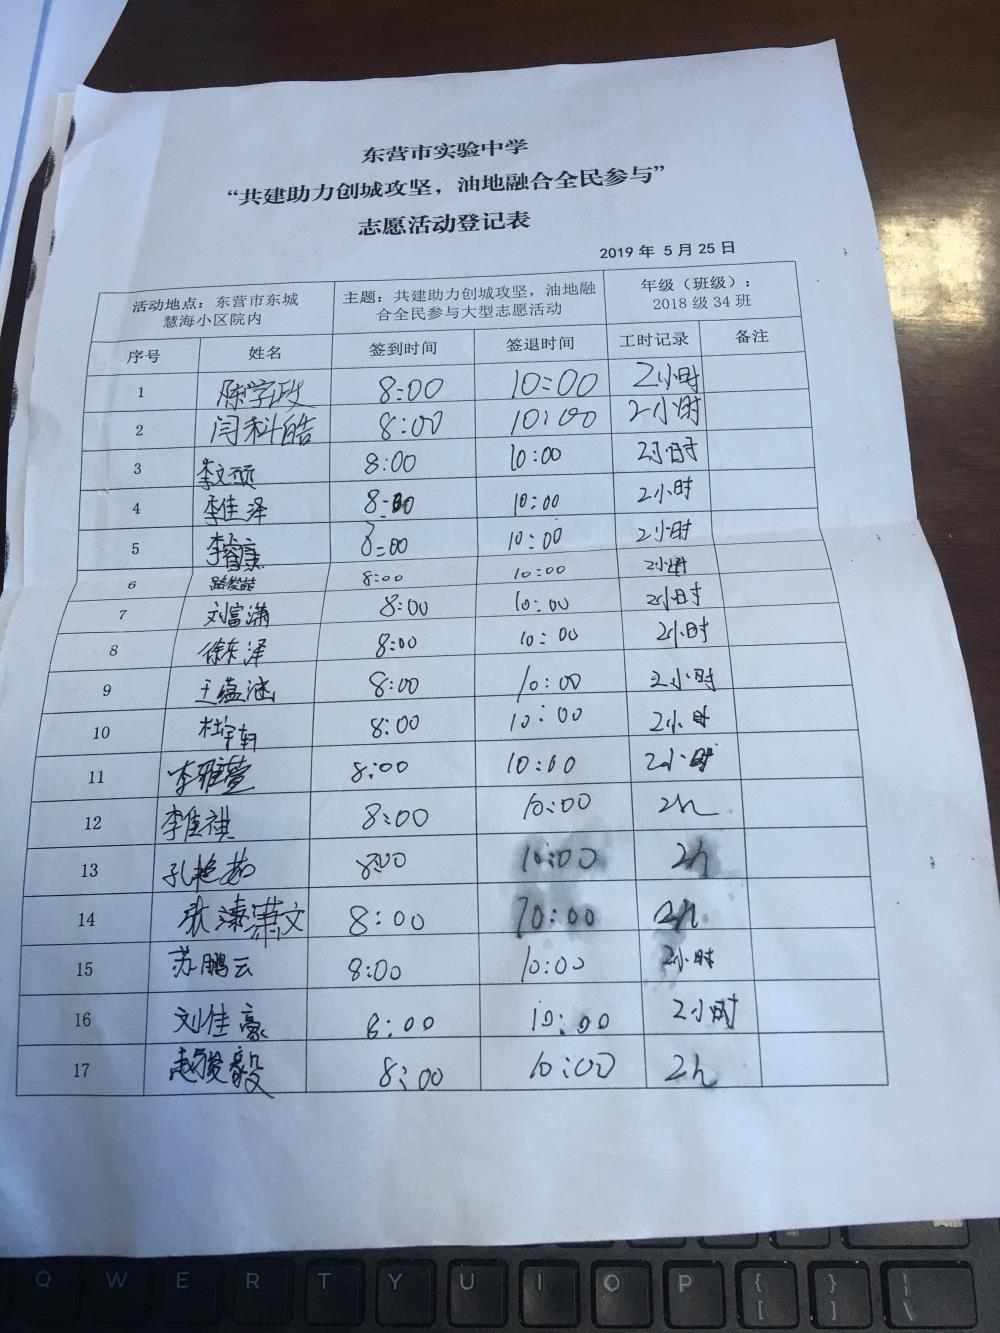 东营市实验中学
“共建助力创城攻坚，油地融合全民参与”
志愿活动登记表
2019 年 5 月 25 日
活动地点：东营市东城 慧海小区院内 主题：共建助力创城攻坚，油地融合全民参与大型志愿活动 年级（班级）： 2018 级 34 班
序号 姓名 签到时间 签退时间 工时记录 备注
1 陈学政 8:00 10:00 2小时
2 闫科皓 8:00 10:00 2小时
3 李文硕 8:00 10:00 2小时
4 李佳泽 8:00 10:00 2小时
5 李睿康 8:00 10:00 2小时
6 8:00 10:00 2小时
7 刘富满 8:00 10:00 2小时
8 徐东泽 8:00 10:00 2小时
9 王蕴涵 8:00 10:00 2小时
10 杜宇轩 8:00 10:00 2小时
11 李雅萱 8:00 10:00 2小时
12 李佳祺 8:00 10:00 2h
13 孔艳茹 8:00 10:00 2h
14 张 文 8:00 10:00 2h
15 苏鹏云 8:00 10:00 2小时
16 刘佳豪 8:00 10:00 2小时
17 赵俊毅 8:00 10:00 2h
Q W E R T Y U I O P { [ } ] | \